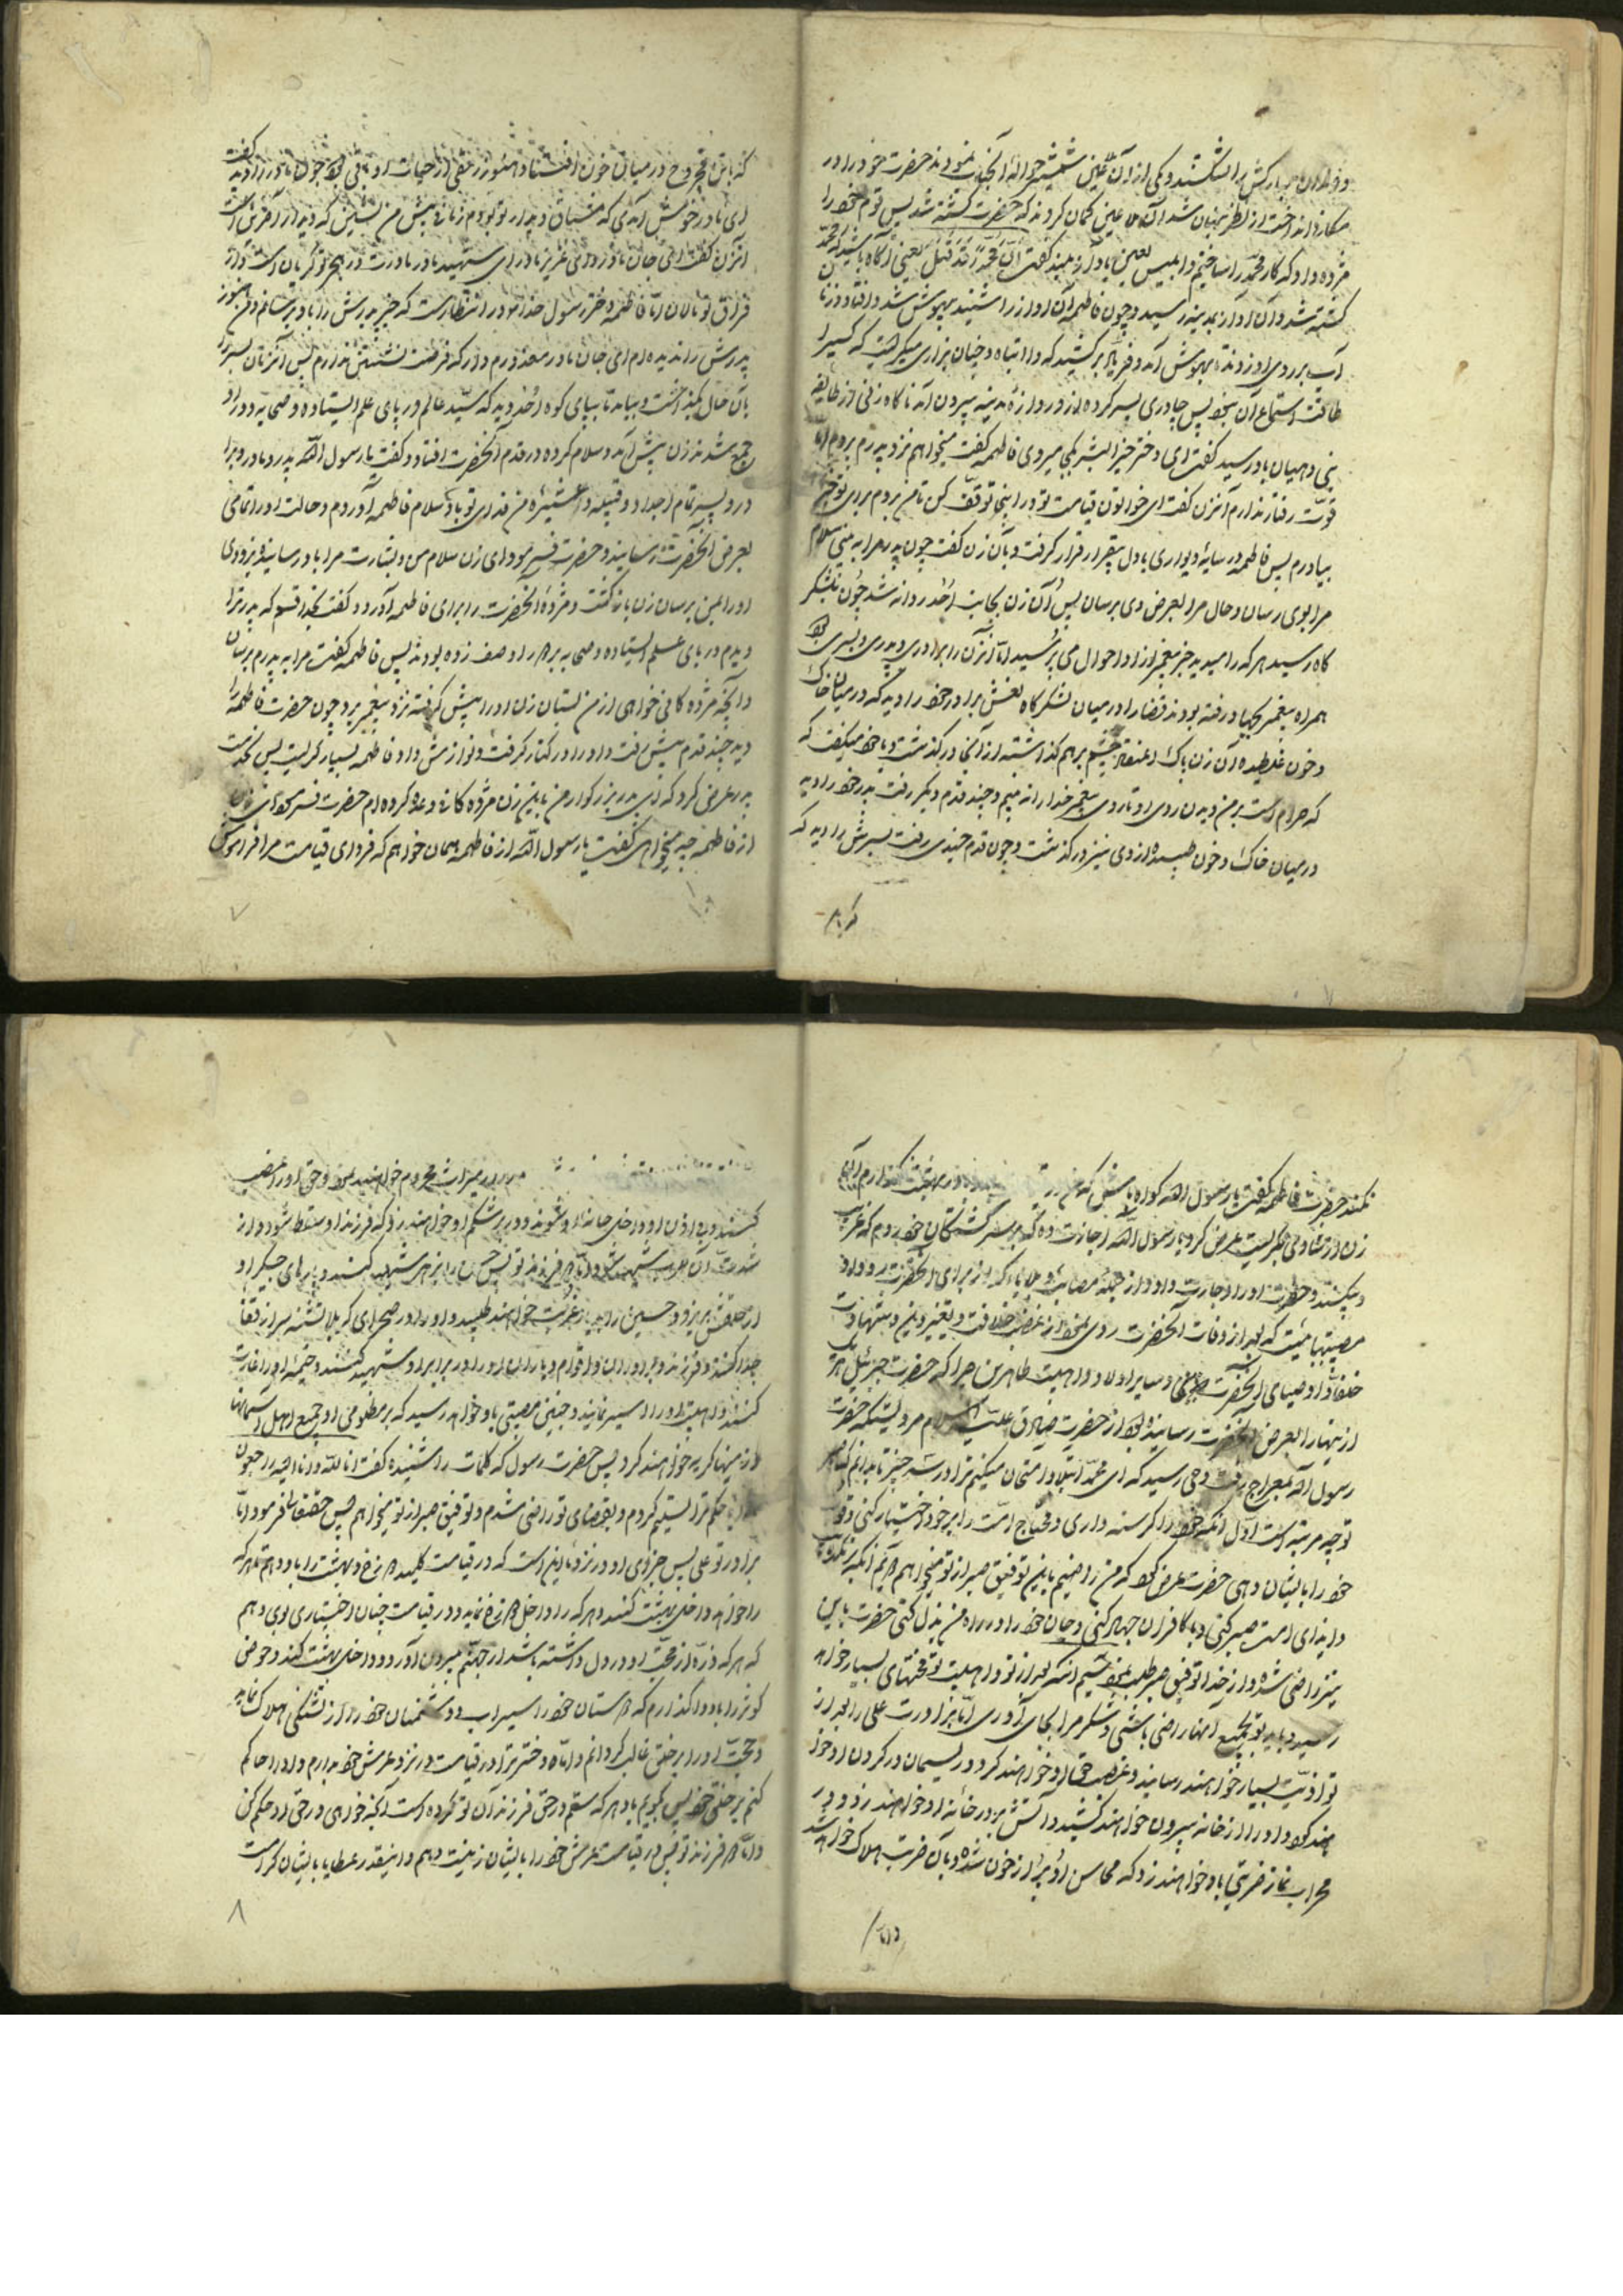 و دندان مبارکش را شکستند و یکی از آن لعین شمشیر حواله آنجناب نمودند حضرت خود را در
مکارند انداخت از نظر پنهان شد آن ملاعین گمان کردند که حضرت کشته شد پس قوم خود را
مژده داد که کار محمد را ساختیم و ابلیس لعین باواز بلند گفت ان محمدا قد قتل یعنی آگاه باشید که محمد
کشته شد و آن آواز بمدینه رسید و چون فاطمه آن آواز را شنید بیهوش شد و افتاد و زنان
آب بر روی او زدند بهوش آمد و فریاد برکشید که وا ابتاه و چنان بزاری میگریست که کسیرا
طاقت استماع آن نبود پس چادری بسر کرده از دروازه مدینه بیرون آمد ناگاه زنی از طایفه
بنی دهبیان باو رسید گفت ای دختر خیر البشر بکجا میروی فاطمه گفت میخواهم نزد پدرم بروم اما
قوت رفتار ندارم آنزن گفت ای خواتون قیامت تو در اینجا توقف کن تا من بروم برای تو خبر
بیاورم پس فاطمه در سایه دیواری با دل بیقرار قرار گرفت و بآن زن گفت چون پدر مرا به بینی سلام
مرا بوی رسان و حال مرا بعرض وی برسان پس آن زن بجانب احد روانه شد چون بلشکر
گاه رسید هر که را میدید خبر پیغمبر از او احوال می پرسید اما آنزن را برادری و پدری و پسری بود
همراه پیغمبر بجهاد رفته بودند قضا را در میان لشکرگاه نعش برادر خود را دید که در میان خاک
و خون غلطیده آن زن پاک اعتقاد چشم برهم گذاشته از آنجا درگذشت و با خود میگفت که
که حرام است بر من دیدن روی او تا روی پیغمبر خدا را نه بینم و چند قدم دیگر رفت پدر خود را دید
در میان خاک و خون طپیده از وی نیز درگذشت و چون قدم چندی رفت پسرش را دید که
که با تن مجروح در میان خون افتاده و هنوز رمقی از حیات او باقی بود چون مادر را دید گفت
ای مادر خوش آمدی که مشتاق دیدار تو بودم زمانی پیش من بنشین که دیدار آخری است
آنزن گفت ای جان مادر و ای عزیز مادر ای شهید مادر مادرت در هجر تو گریان است و از
فراق تو نالان اما فاطمه دختر رسول خدا در انتظار است که خبر پدرش را باو برسانم و من هنوز
پدرش را ندیده ام ای جان مادر معذورم دار که فرصت نشستن ندارم پس آنزن پسر را
بآن حال بگذاشت و بیامد تا بپای کوه احد دید که سید عالم در پای علم ایستاده و صحابه دور او
جمع شدند زن پیش آمد و سلام کرده در قدم آنحضرت افتاد و گفت یا رسول الله پدر و مادر و برادر
و پسر تمام اجداد و قبیله و عشیره من فدای تو باد سلام فاطمه آوردم و حالت او را تمامی
بعرض آنحضرت رسانید و حضرت فرمود ای زن سلام من و بشارت مرا باو رسانید و بزودی
او را بمن برسان زن بازگشت و مژده آنحضرت را برای فاطمه آورد و گفت بخدا قسم که پدر ترا
دیدم در پای علم ایستاده و صحابه برگرد او صف زده بودند پس فاطمه گفت مرا به پدرم برسان
و آنچه مژدگانی خواهی از من بستان زن او را پیش گرفته نزد پیغمبر برد چون حضرت فاطمه را
دید چند قدم پیش رفت و او را در کنار گرفت و نوازش داد فاطمه بسیار گریست پس بخدمت
پدر عرض کرد که ای پدر بزرگوار من باین زن مژدگانی وعده کرده ام حضرت فرمود ای زن
از فاطمه چه میخواهی گفت یا رسول الله از فاطمه همان خواهم که فردای قیامت مرا فراموش
۷
نکند حضرت فاطمه گفت یا رسول الله گواه باش که من در بهشت نگذارم آن
زن از شادی بگریست عرض کرد یا رسول الله اجازت ده که بر سر کشتگان خود روم که غریب
و بیکسند حضرت او را اجازت داد و از جمله مصائب و بلایا که از برای آنحضرت رو داد
مصیبتهائیست که بعد از وفات آنحضرت روی نمود از غصب خلافت و تغییر دین و شهادت
خلفا و اوصیای آنحضرت و سایر اولاد و اهلبیت طاهرین چرا که حضرت جبرئیل هر یک
از اینها را بعرض آنحضرت رسانیده بود از حضرت صادق علیه السلام مرویست که حضرت
رسول الله بمعراج رفت وحی رسید که ای محمد ابتلا و امتحان میکنم ترا در سه چیز تا بدانم که صبر
تو چه مرتبه است اول آنکه خود را گرسنه داری و محتاج امت را بر خود اختیار کنی و قوت
خود را بایشان دهی حضرت عرض کرد که من راضیم باین توفیق صبر از تو میخواهم دویم آنکه بر تکذیب
و ایذای امت صبر کنی و با کافران جهاد کنی و جان خود را در راه من بذل کنی حضرت باین
نیز راضی شده و از خدا توفیق صبر طلب نمود سیم آنکه بعد از تو و اهلبیت تو محنتهای بسیار خواهد
رسید و باید تو بجمیع اینها راضی باشی و شکر مرا بجای آوری اما برادرت علی را بعد از
تو اذیت بسیار خواهند رسانید و غصب حق او خواهند کرد و ریسمان در گردن او خواهند
نهاد و او را از خانه بیرون خواهند کشید و آتش بر در خانه او خواهند زد و در
محراب نماز ضربتی باو خواهند زد که محاسن او پر از خون شده و بآن ضربت هلاک خواهد شد
و اما
از میراث محروم خواهند نمود و حق او را غصب
کنند و بی اذن او داخل خانه او شوند و در بر شکم او خواهند زد که فرزند او سقط شود و از
شدت آن ضرب شهید شود و اما فرزند تو حسن را بزهر شهید کنند و پارهای جگر او
از حلقش بریزد و حسین را بدیار غربت خواهند طلبید و او را در صحرای کربلا تشنه سر از قفا
جدا کنند و فرزند و برادران و اقوام و یاران او را در برابر او شهید کنند و خیمه او را غارت
کنند و اهلبیت او را اسیر نمایند و چنین مصیبتی باو خواهد رسید که بر مظلومی او جمیع اهل آسمانها
و زمینها گریه خواهند کرد پس حضرت رسول که کلمات را شنیده گفت انا لله و انا الیه راجعون
خدایا حکم ترا تسلیم کردم و بقضای تو راضی شدم و توفیق صبر از تو میخواهم پس حقتعالی فرمود اما
برادر تو علی پس جزای او در نزد ما این است که در قیامت کلید دوزخ و بهشت را باو دهم تا هر که
را خواهد داخل بهشت کند و هر که را داخل دوزخ نماید و در قیامت چنان اختیاری بوی دهم
که هر که ذره از محبت او در دل داشته باشد از جهنم بیرون آورد و داخل بهشت کند و حوض
کوثر را باو واگذارم که دوستان خود را سیراب و دشمنان خود را از تشنگی هلاک نماید
و حجت او را بر خلق غالب گردانم و اما دختر ترا در قیامت در نزد عرش خود بدارم و او را حاکم
کنم بر خلق خود پس بگویم باو هر که ستم در حق فرزندان تو کرده است آنچه خواهی در حق او حکم کن
و اما دو فرزند تو پس در قیامت عرش خود را بایشان زینت دهم و اینقدر عطایا بایشان کرامت
۸